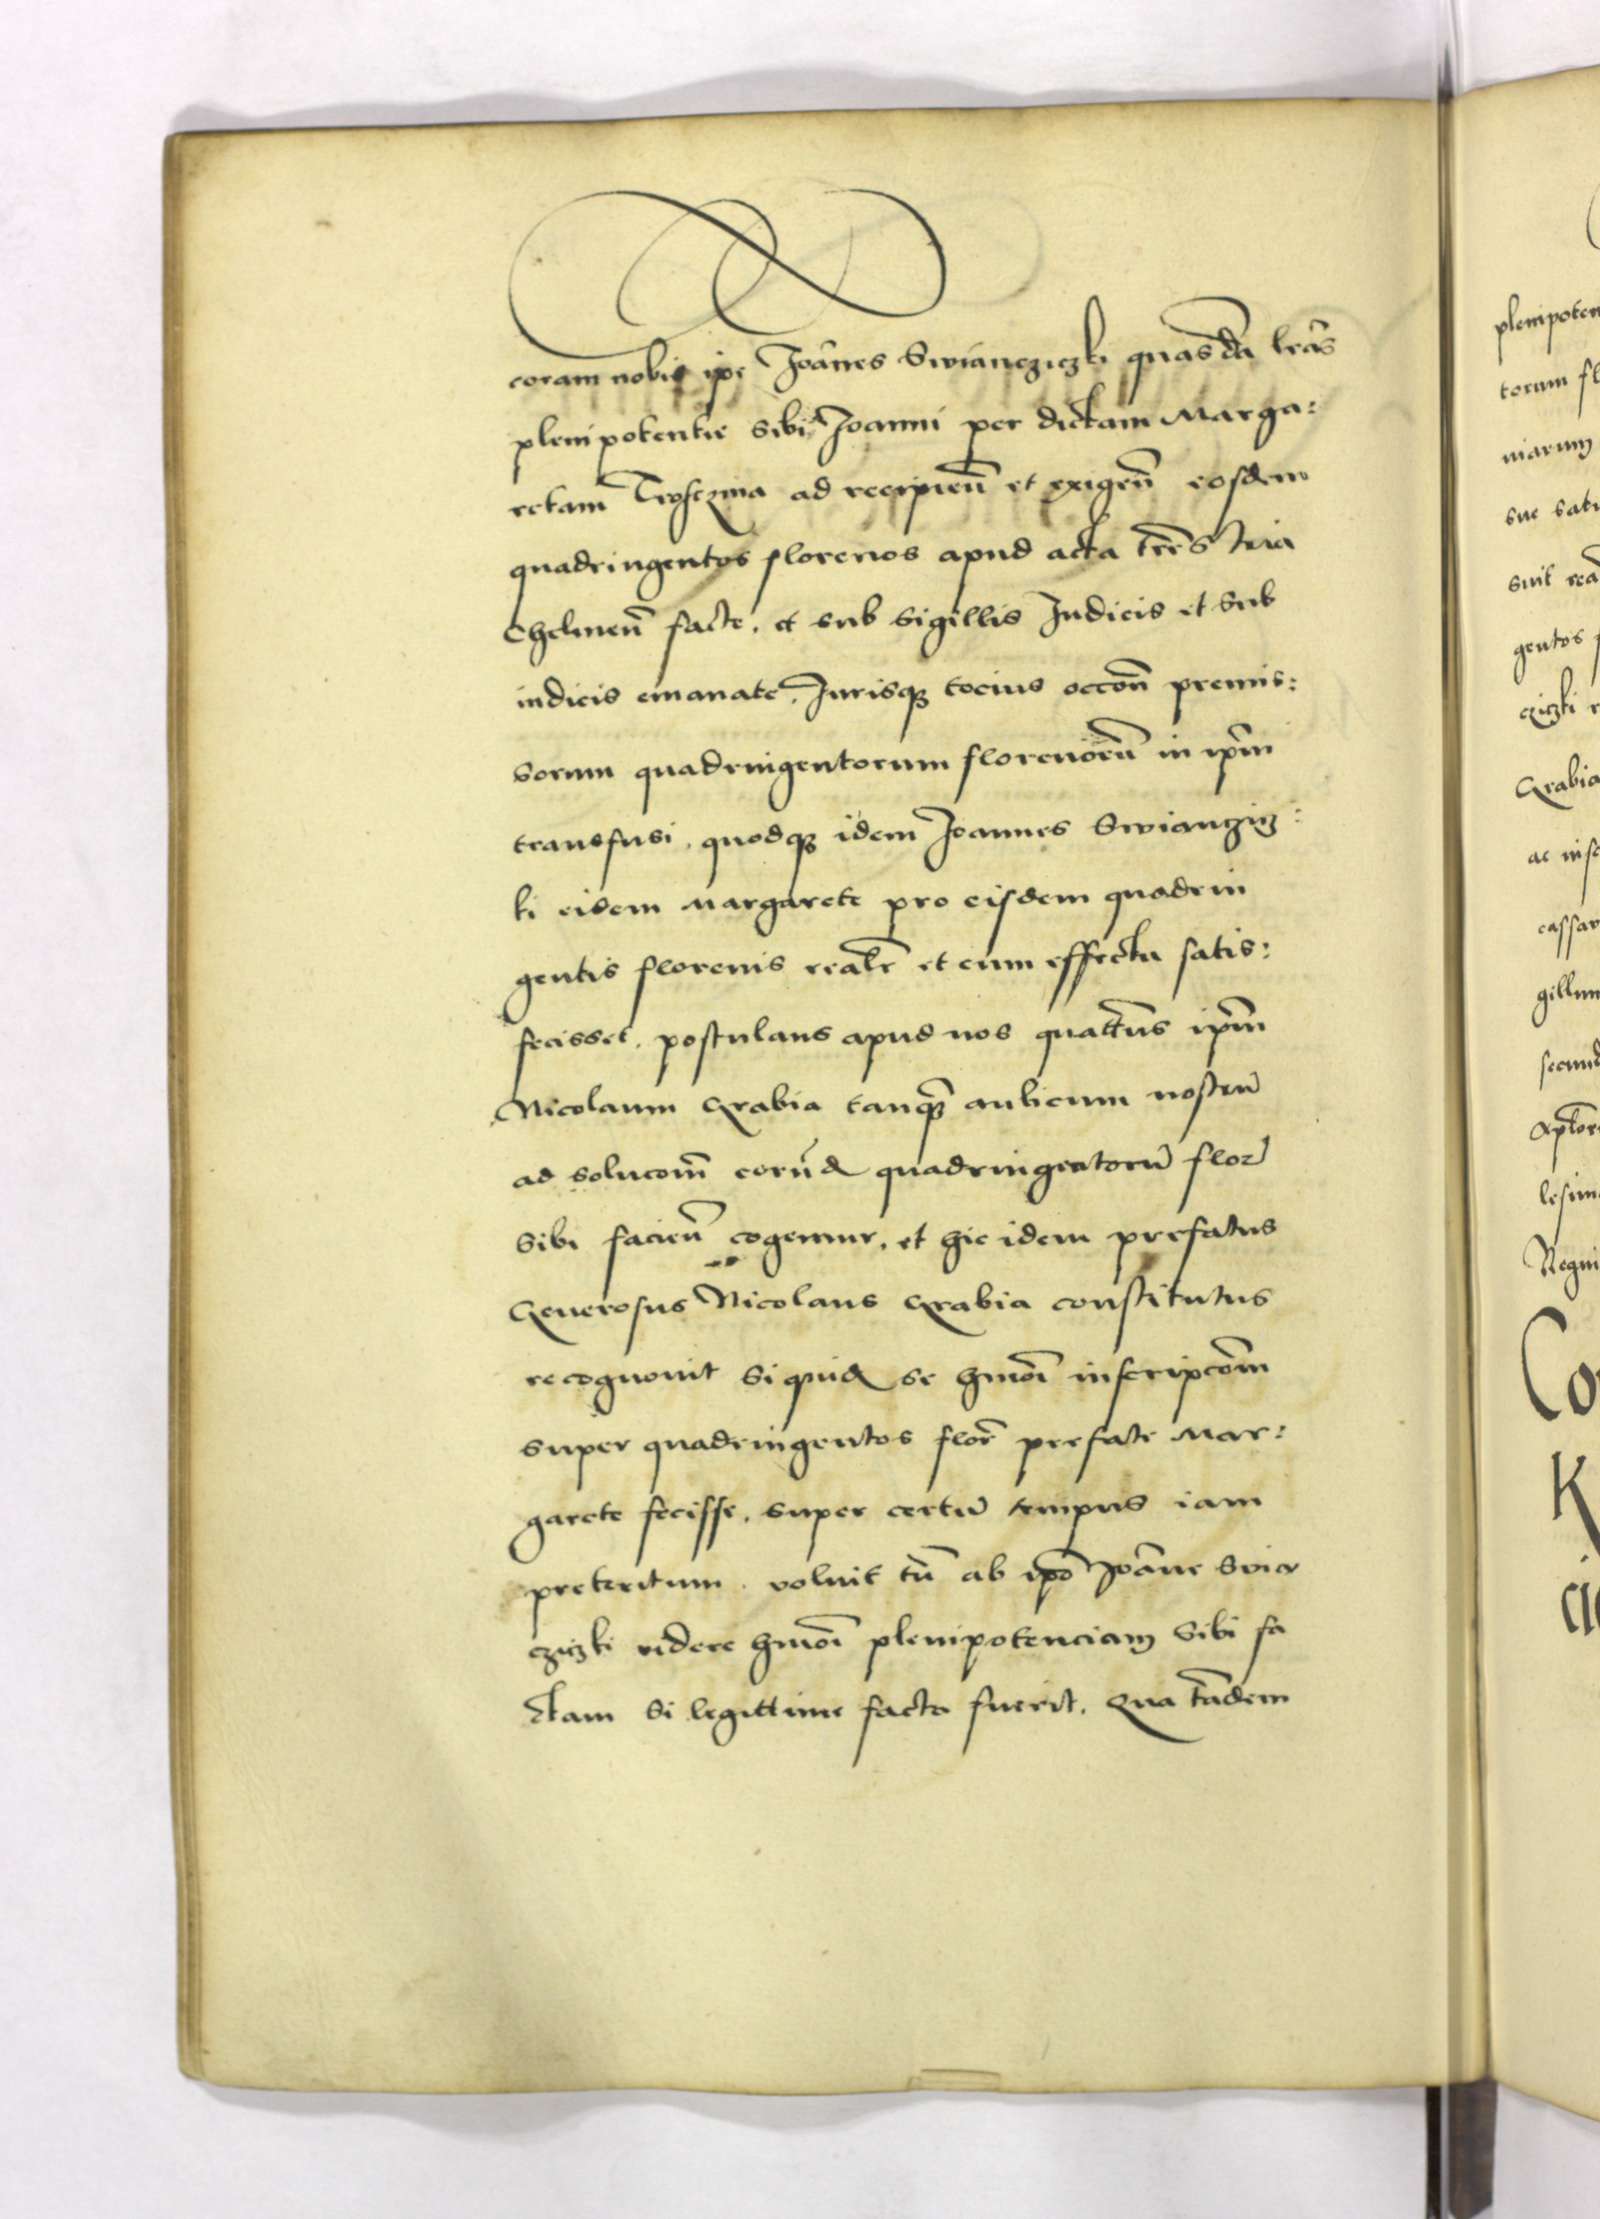 coram nobis ipe Joānes Swiancziczki quasdā lrās
plenipotentie sibi Joanni per dictam Marga:
retam ad recipien̄ et exigen̄ eosdem
quadringentos florenos apud acta terrēstria
Chelmen̄ facte. et sub sigillis Iudicis et sub
iudicis emanate, Jurisq₃ tocius occōn premis:
sorum quadringentorum florenorū in ipm̄
transfusi, quodq₃ idem Joannes Swianczicz:
ki eidem Margarete pro eisdem quadrin
gentis florenis realr̄ et cum effectu satis:
fecisset, postulans apud nos quatten̄s ipm̄
Nicolaum Grabia tanq₃ aulicum nostrū
ad solucōm eorūd quadringentorū flor̄
sibi facien̄ cogemur, et hic idem prefatus
Generosus Nicolaus Grabia constitutus
recognouit siquid se hmōi inscripcōm
super quadringentos flor̄ prefate Mar:
garete fecisse, super certū tempus iam
preteritum. voluit tn̄ ab ipō Joāne Svia
cziczki videre hmōi plenipotenciam sibi fa
ctam si legittime facta fuerit. Qua tādem
plenipoten
torum fl
niarum
sue sati
suit rea
gentos
cziczki r
Grabia
ac insc
cassar
gillum
secund
Aplor
lesim
Regni
Co
K